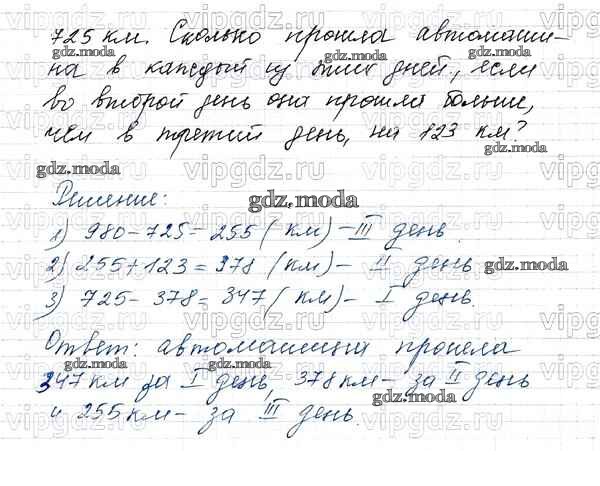 725 км. Сколько прошла автомаши-
на в каждый из этих дней, если
во второй день она прошла больше,
чем в третий день, на 123 км?
Решение:
1) 980-725=255 (км) - III день.
2) 255+123=378 (км) - II день
3) 725-378=347 (км) - I день.
Ответ: автомашина прошла
347 км за I день 378 км - за II день
и 255 км - за III день.
gdz.moda
vipgdz.ru